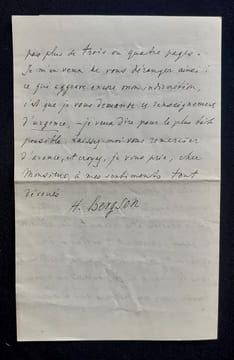 pas plus de trois ou quatre pages.
Je m'en veux de vous déranger ainsi :
ce qui aggrave encore mon indiscrétion,
c'est que je vous demande ces renseignements
d'urgence, – je veux dire pour le plus tôt
possible. Laissez-moi vous remercier
d'avance, et croyez, je vous prie, cher
Monsieur, à mes sentiments tout
dévoués
H. Bergson